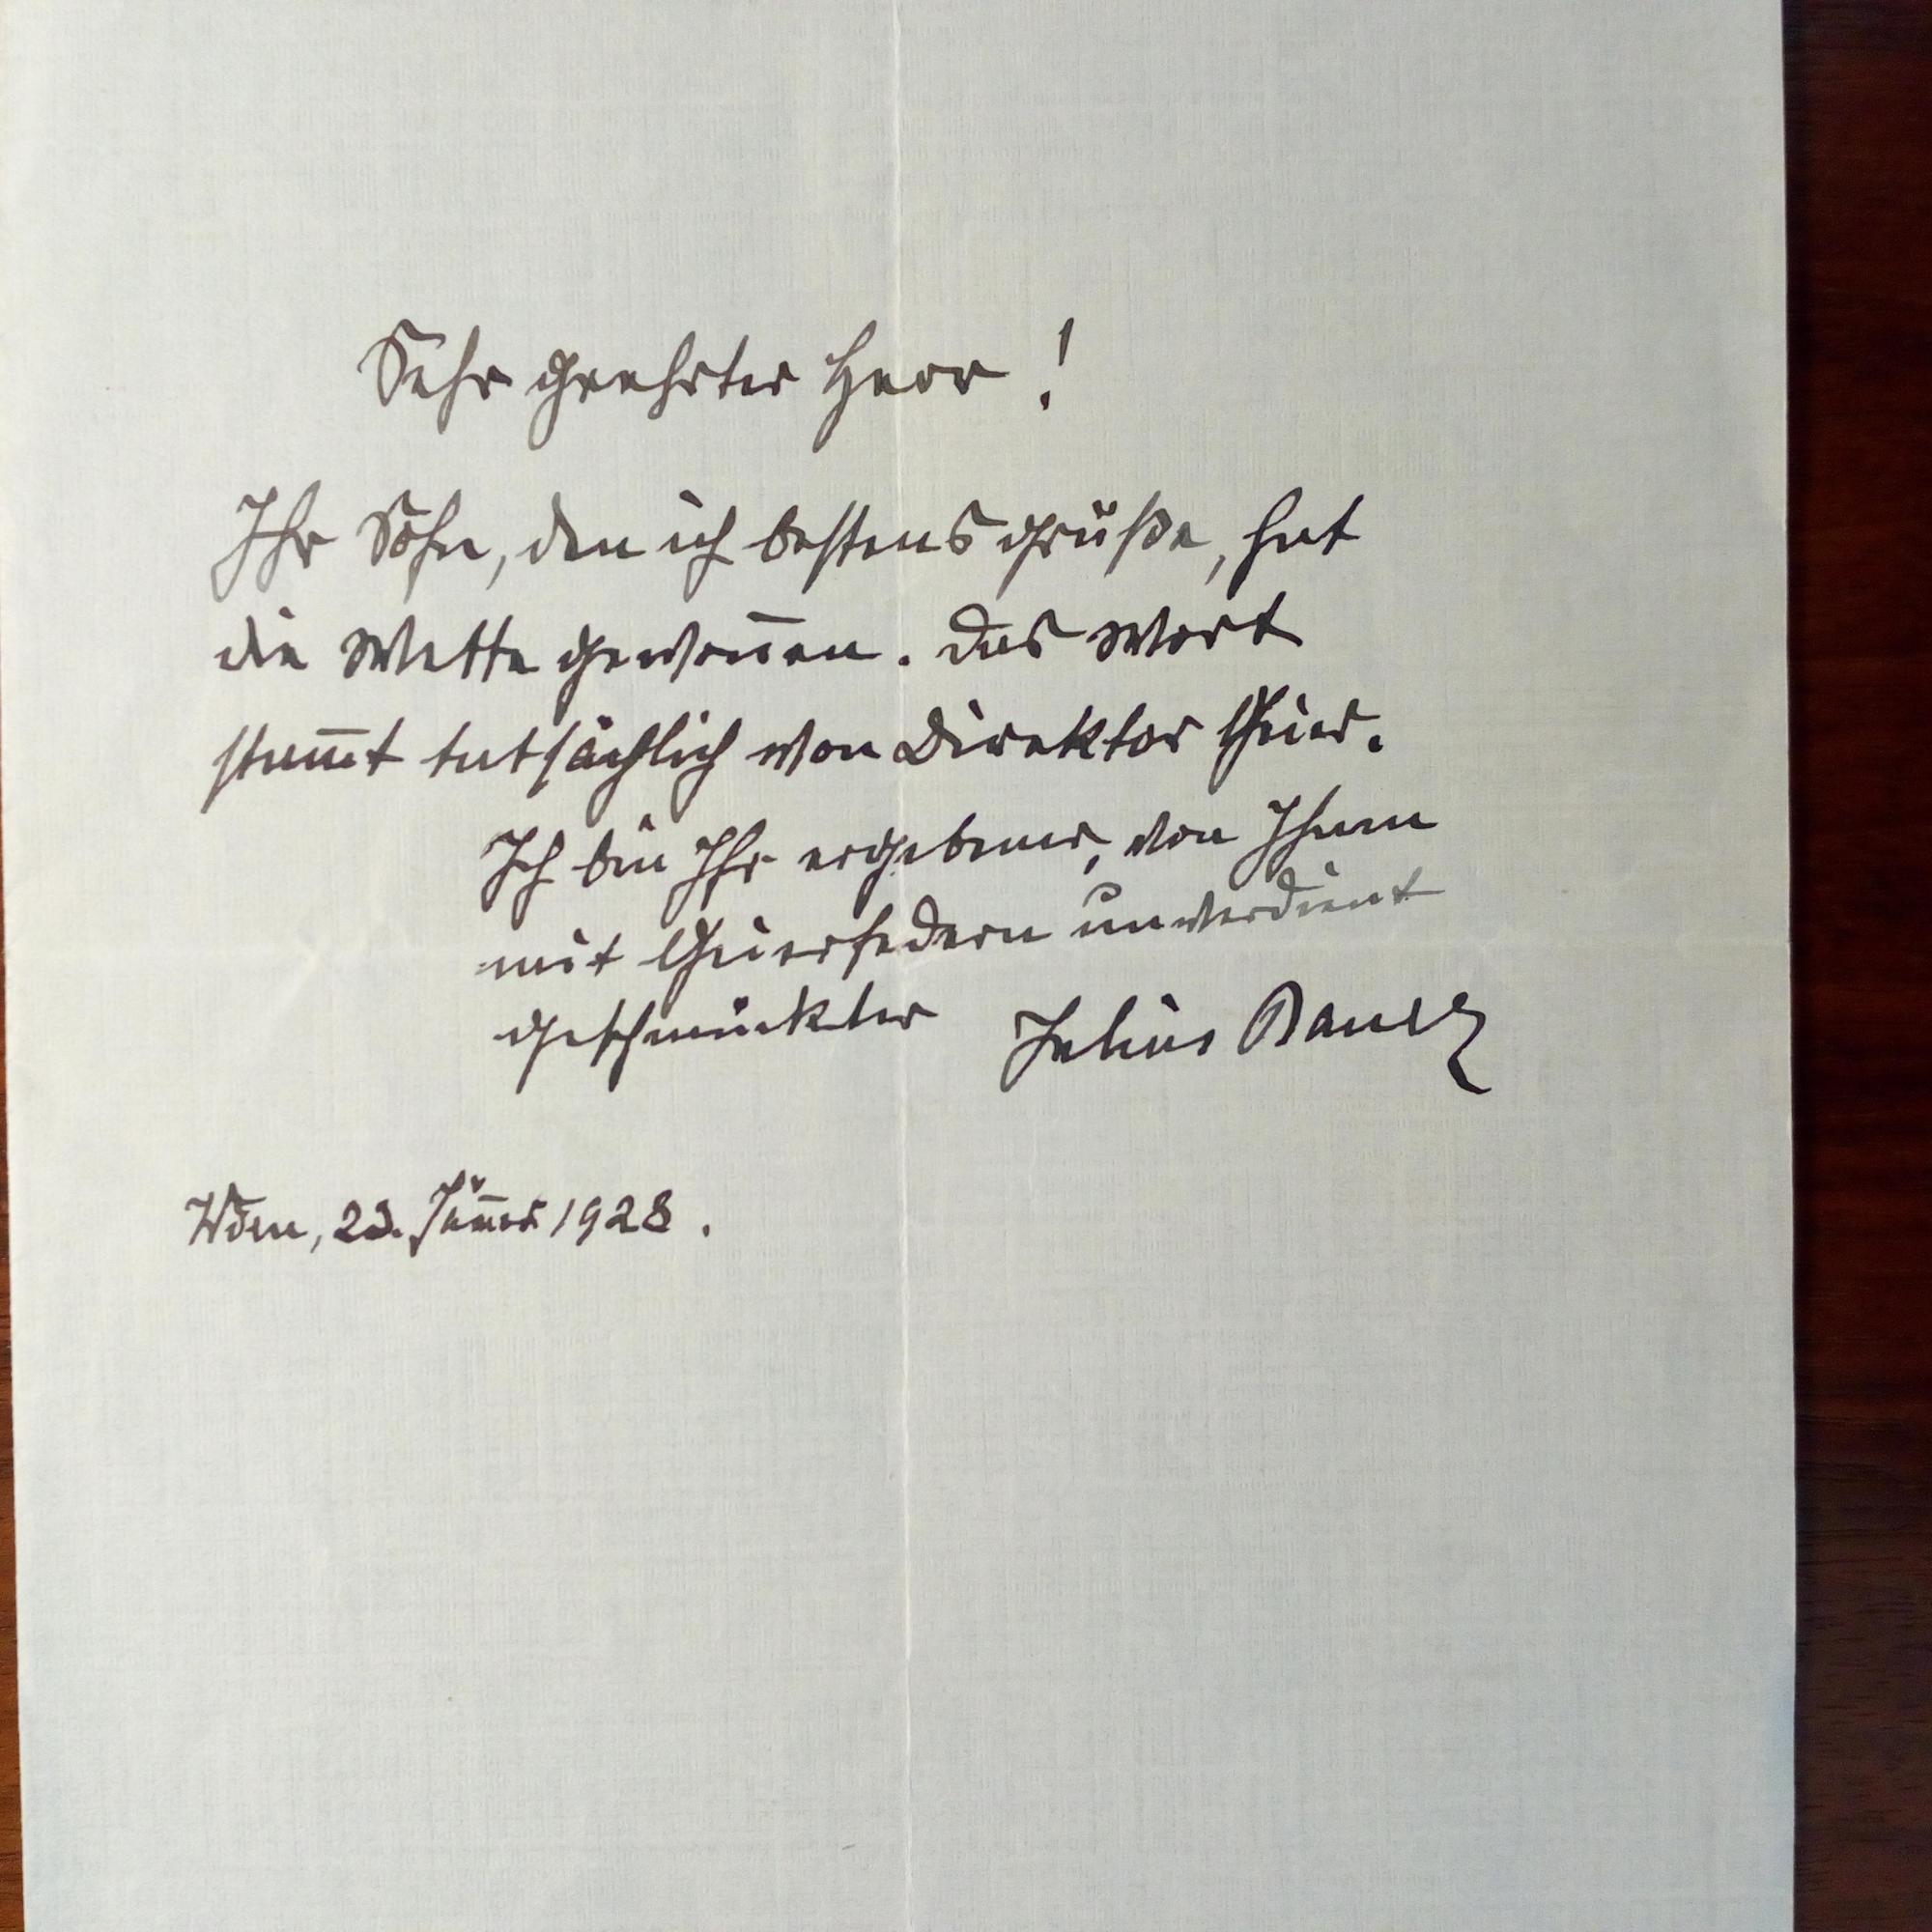 Sehr geehrter Herr!
Ihr Sohn, den ich bestens grüße, hat
die Wette gewon̄en. Das Wort
stam̄t tatsächlich von Direktor Geier.
Ich bin Ihr ergebener, von Ihnen
mit Geierfedern unverdient
geschmückter Julius Bauer
Wien, 23. Jän̄er 1928.